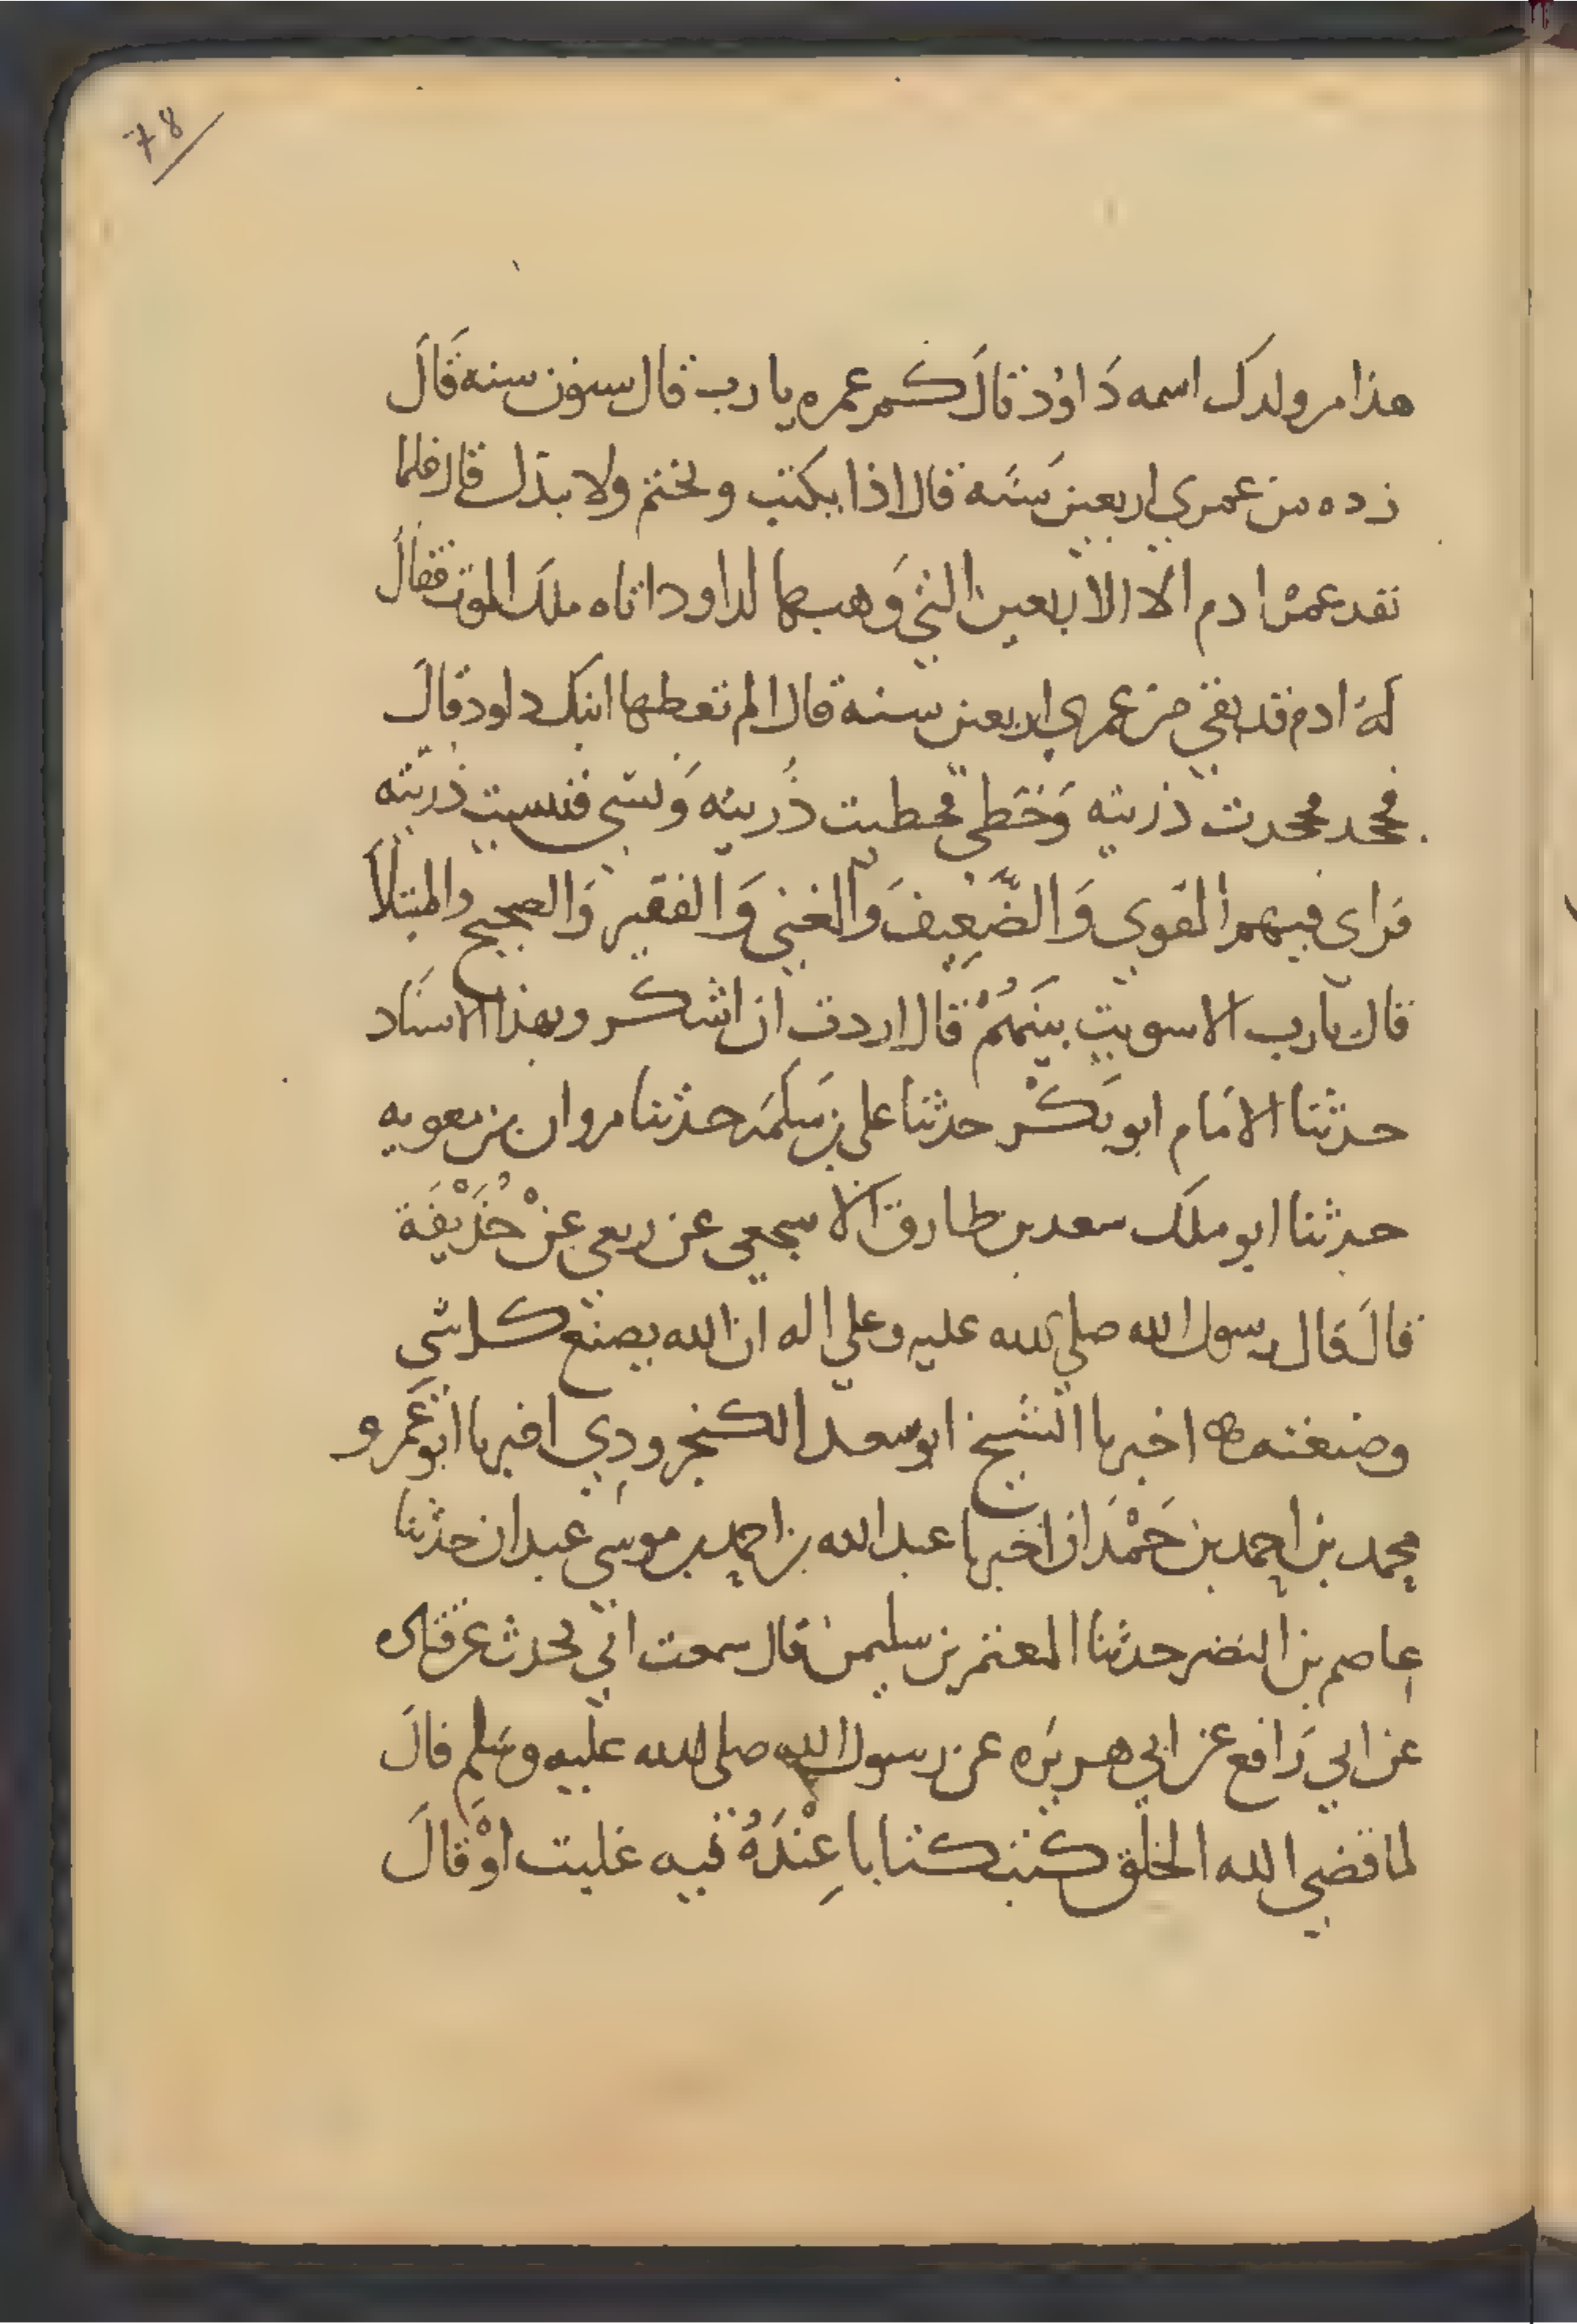 78
هذا من ولدك اسمه دَاوُد قالَ كم عمره يا رب قال ستون سنه قَالَ
زده من عمري اربعين سَنَه قال اذا يكتب ويختم ولا يبدّل قال فلما
نفد عمر ادم الا الاربعين التي وَهبها لداود اتاه ملك الموت فقالَ
لهُ ادم قد بقي من عمري اربعين سنة قال الم تعطها ابنك داود قالَ
فجحد فجحدت ذريته وَخَطي فخطيت ذُريته وَنسَي فنسيت ذريّته
فراى فيهم القوي وَالضَّعِيفَ وَالغني وَالفقير وَالصحيح والمبتلاَ
قال يَارب الا سويت بينَهُمْ قال اردت ان اشكر وبهذا الاسنَاد
حدثنا الامَام ابو بَكْر حدثنا علي بن سَلمَة حدثنا مروان بن معويه
حدثنا ابو ملك سعد بن طارق الاشجعي عن ربعي عنْ حُذَيْفَة
قالَ قال رسول الله صلى الله عليه وعلى اله ان الله يصنع كل شي
وصنعته اخبرنا الشيخ ابو سعد الكنجرودِي اخبرنا ابو عَمرو
محمد بن احمد بن حَمْدَان اخبرنا عبد الله بن احمد بن موسَى عبدان حدثنا
عاصم بن النضر حدثنا المعتمر بن سليمن قال سمعت ابي يحدث عن قتاده
عن ابي رَافع عن ابي هريَره عن رسول الله صلى الله عليه وسَلم قالَ
لما قضى الله الخلق كتب كتابا عِنْدَهُ فيه غلبت اوْ قَالَ